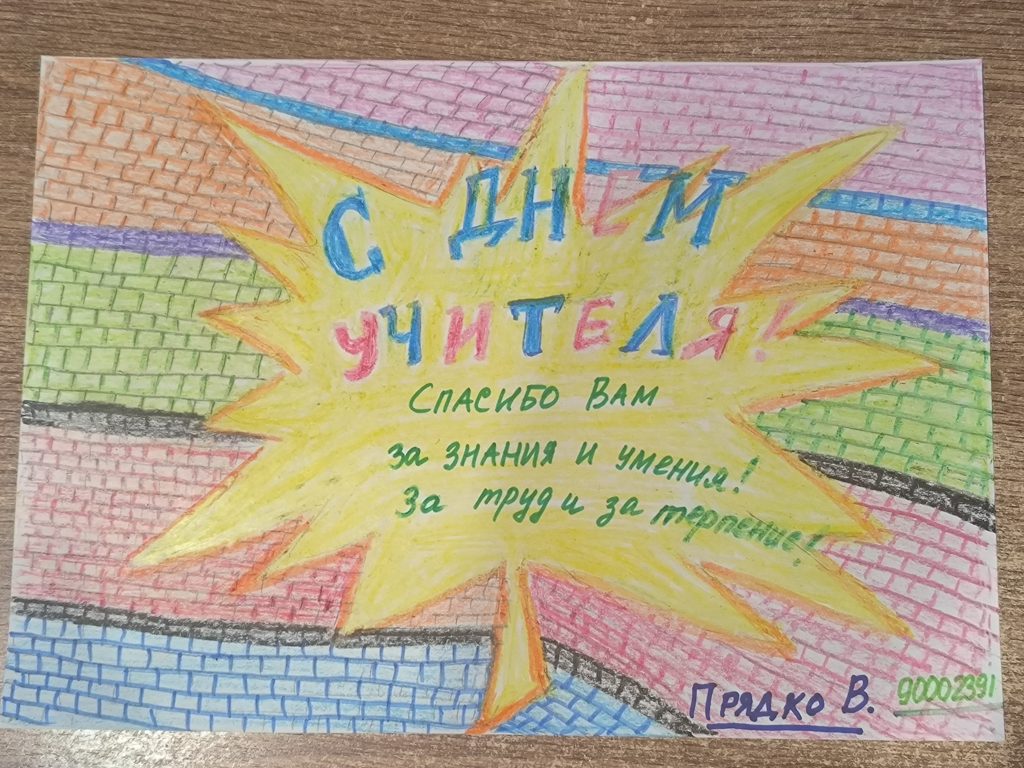 С ДНЕМ
УЧИТЕЛЯ!
СПАСИБО ВАМ
за ЗНАНИЯ и умения!
За труд и за терпение!
ПРЯДКО В. 90002391